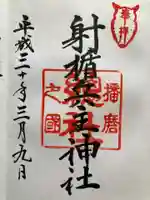 奉拝
播磨
射楯兵主神社
之國
平成三十年三月九日